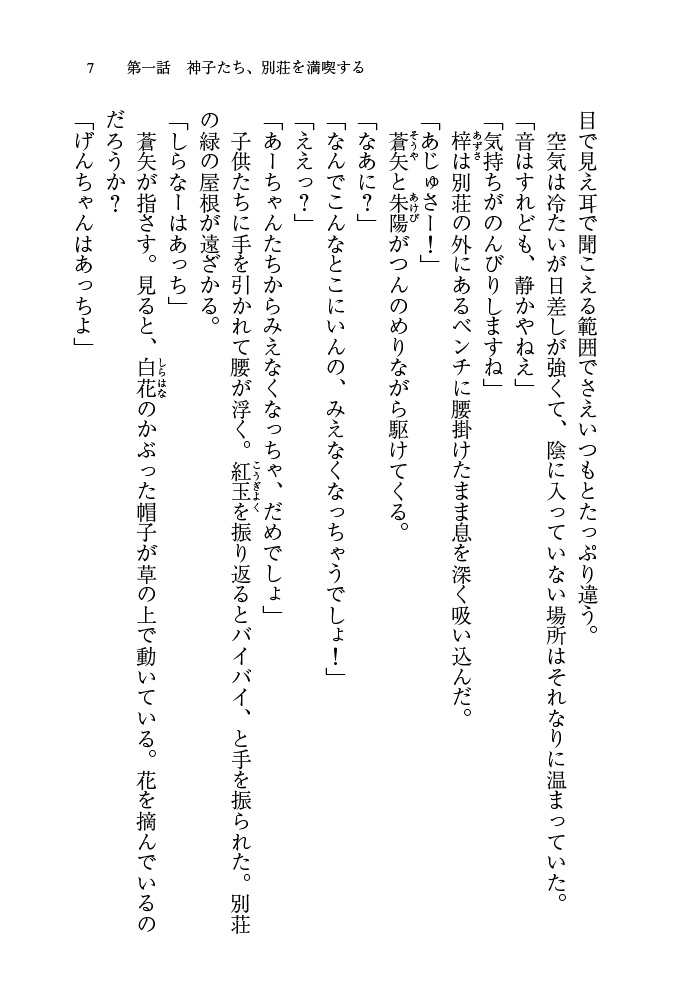 7　第一話　神子たち、別荘を満喫する
目で見え耳で聞こえる範囲でさえいつもとたっぷり違う。
　空気は冷たいが日差しが強くて、陰に入っていない場所はそれなりに温まっていた。
「音はすれども、静かやねえ」
「気持ちがのんびりしますね」
　梓は別荘の外にあるベンチに腰掛けたまま息を深く吸い込んだ。
「あじゅさー！」
　蒼矢と朱陽がつんのめりながら駆けてくる。
「なあに？」
「なんでこんなとこにいんの、みえなくなっちゃうでしょ！」
「ええっ？」
「あーちゃんたちからみえなくなっちゃ、だめでしょ」
　子供たちに手を引かれて腰が浮く。紅玉を振り返るとバイバイ、と手を振られた。別荘
の緑の屋根が遠ざかる。
「しらなーはあっち」
　蒼矢が指さす。見ると、白花のかぶった帽子が草の上で動いている。花を摘んでいるの
だろうか？
「げんちゃんはあっちよ」